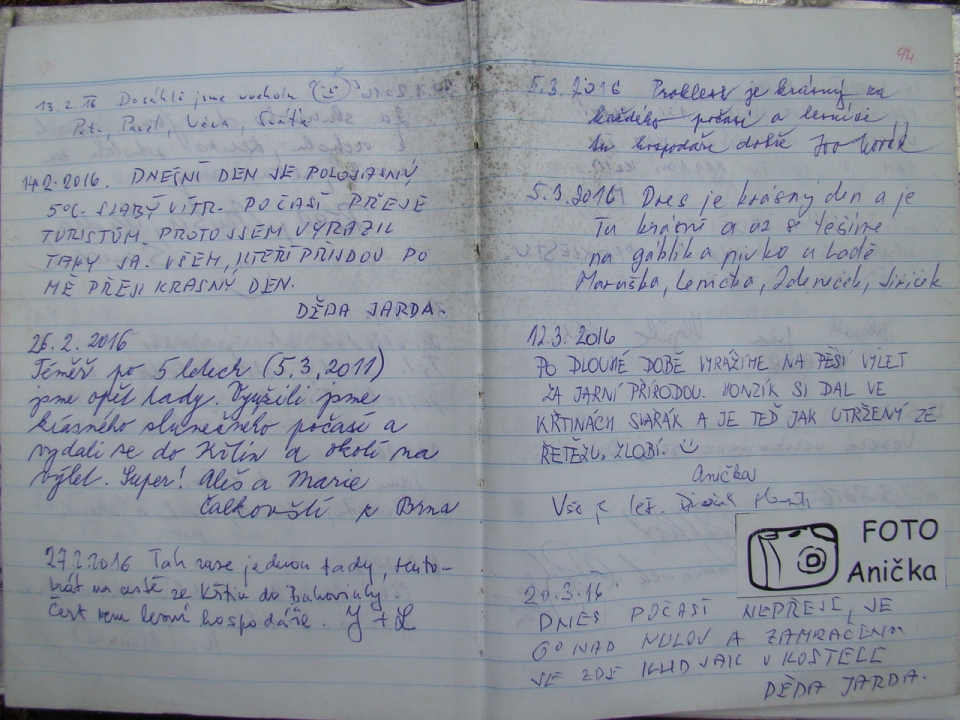 13.2.16 Dosáhli jsme vrcholu
Petr, Pavel, Věra,
14.2.2016. DNEŠNÍ DEN JE POLOJASNÝ
5°C. SLABÝ VÍTR. POČASÍ PŘEJE
TURISTŮM. PROTO JSEM VYRAZIL
TAKY JA. VŠEM, KTEŘÍ PŘIJDOU PO
MĚ PŘEJI KRASNÝ DEN.
DĚDA JARDA.
26.2.2016
Téměř po 5 letech (5.3.2011)
jsme opět tady. Využili jsme
krásného slunečného počasí a
vydali se do Křtin a okolí na
výlet. Super! Aleš a Marie
Čalkovští z Brna
27.2.2016 Tak zase jednou tady, tento-
krát na cestě ze Křtin do Bukovinky.
Čest všem lesní hospodáře. Y + L
94
5.3.2016 Problesk je krásný za
každého počasí a lesníci
tu hospodaří dobře
5.3.2016 Dnes je krásný den a je
Tu krásně a už se těšíme
na gáblik a pivko u Lodě
Maruška, Lenička, Zdeneček, Jiříček
12.3.2016
PO DLOUHÉ DOBĚ VYRÁŽÍME NA PĚŠÍ VÝLET
ZA JARNÍ PŘÍRODOU. HONZÍK SI DAL VE
KŘTINÁCH SVAŘÁK A JE TEĎ JAK UTRŽENÝ ZE
ŘETĚZU, ZLOBÍ.
Anička
Vše
FOTO
Anička
20.3.16.
DNES POČASÍ NEPŘEJE, JE
6° NAD NULOU A ZAMRAČENO
JE ZDE KLID JAK V KOSTELE
DĚDA JARDA.